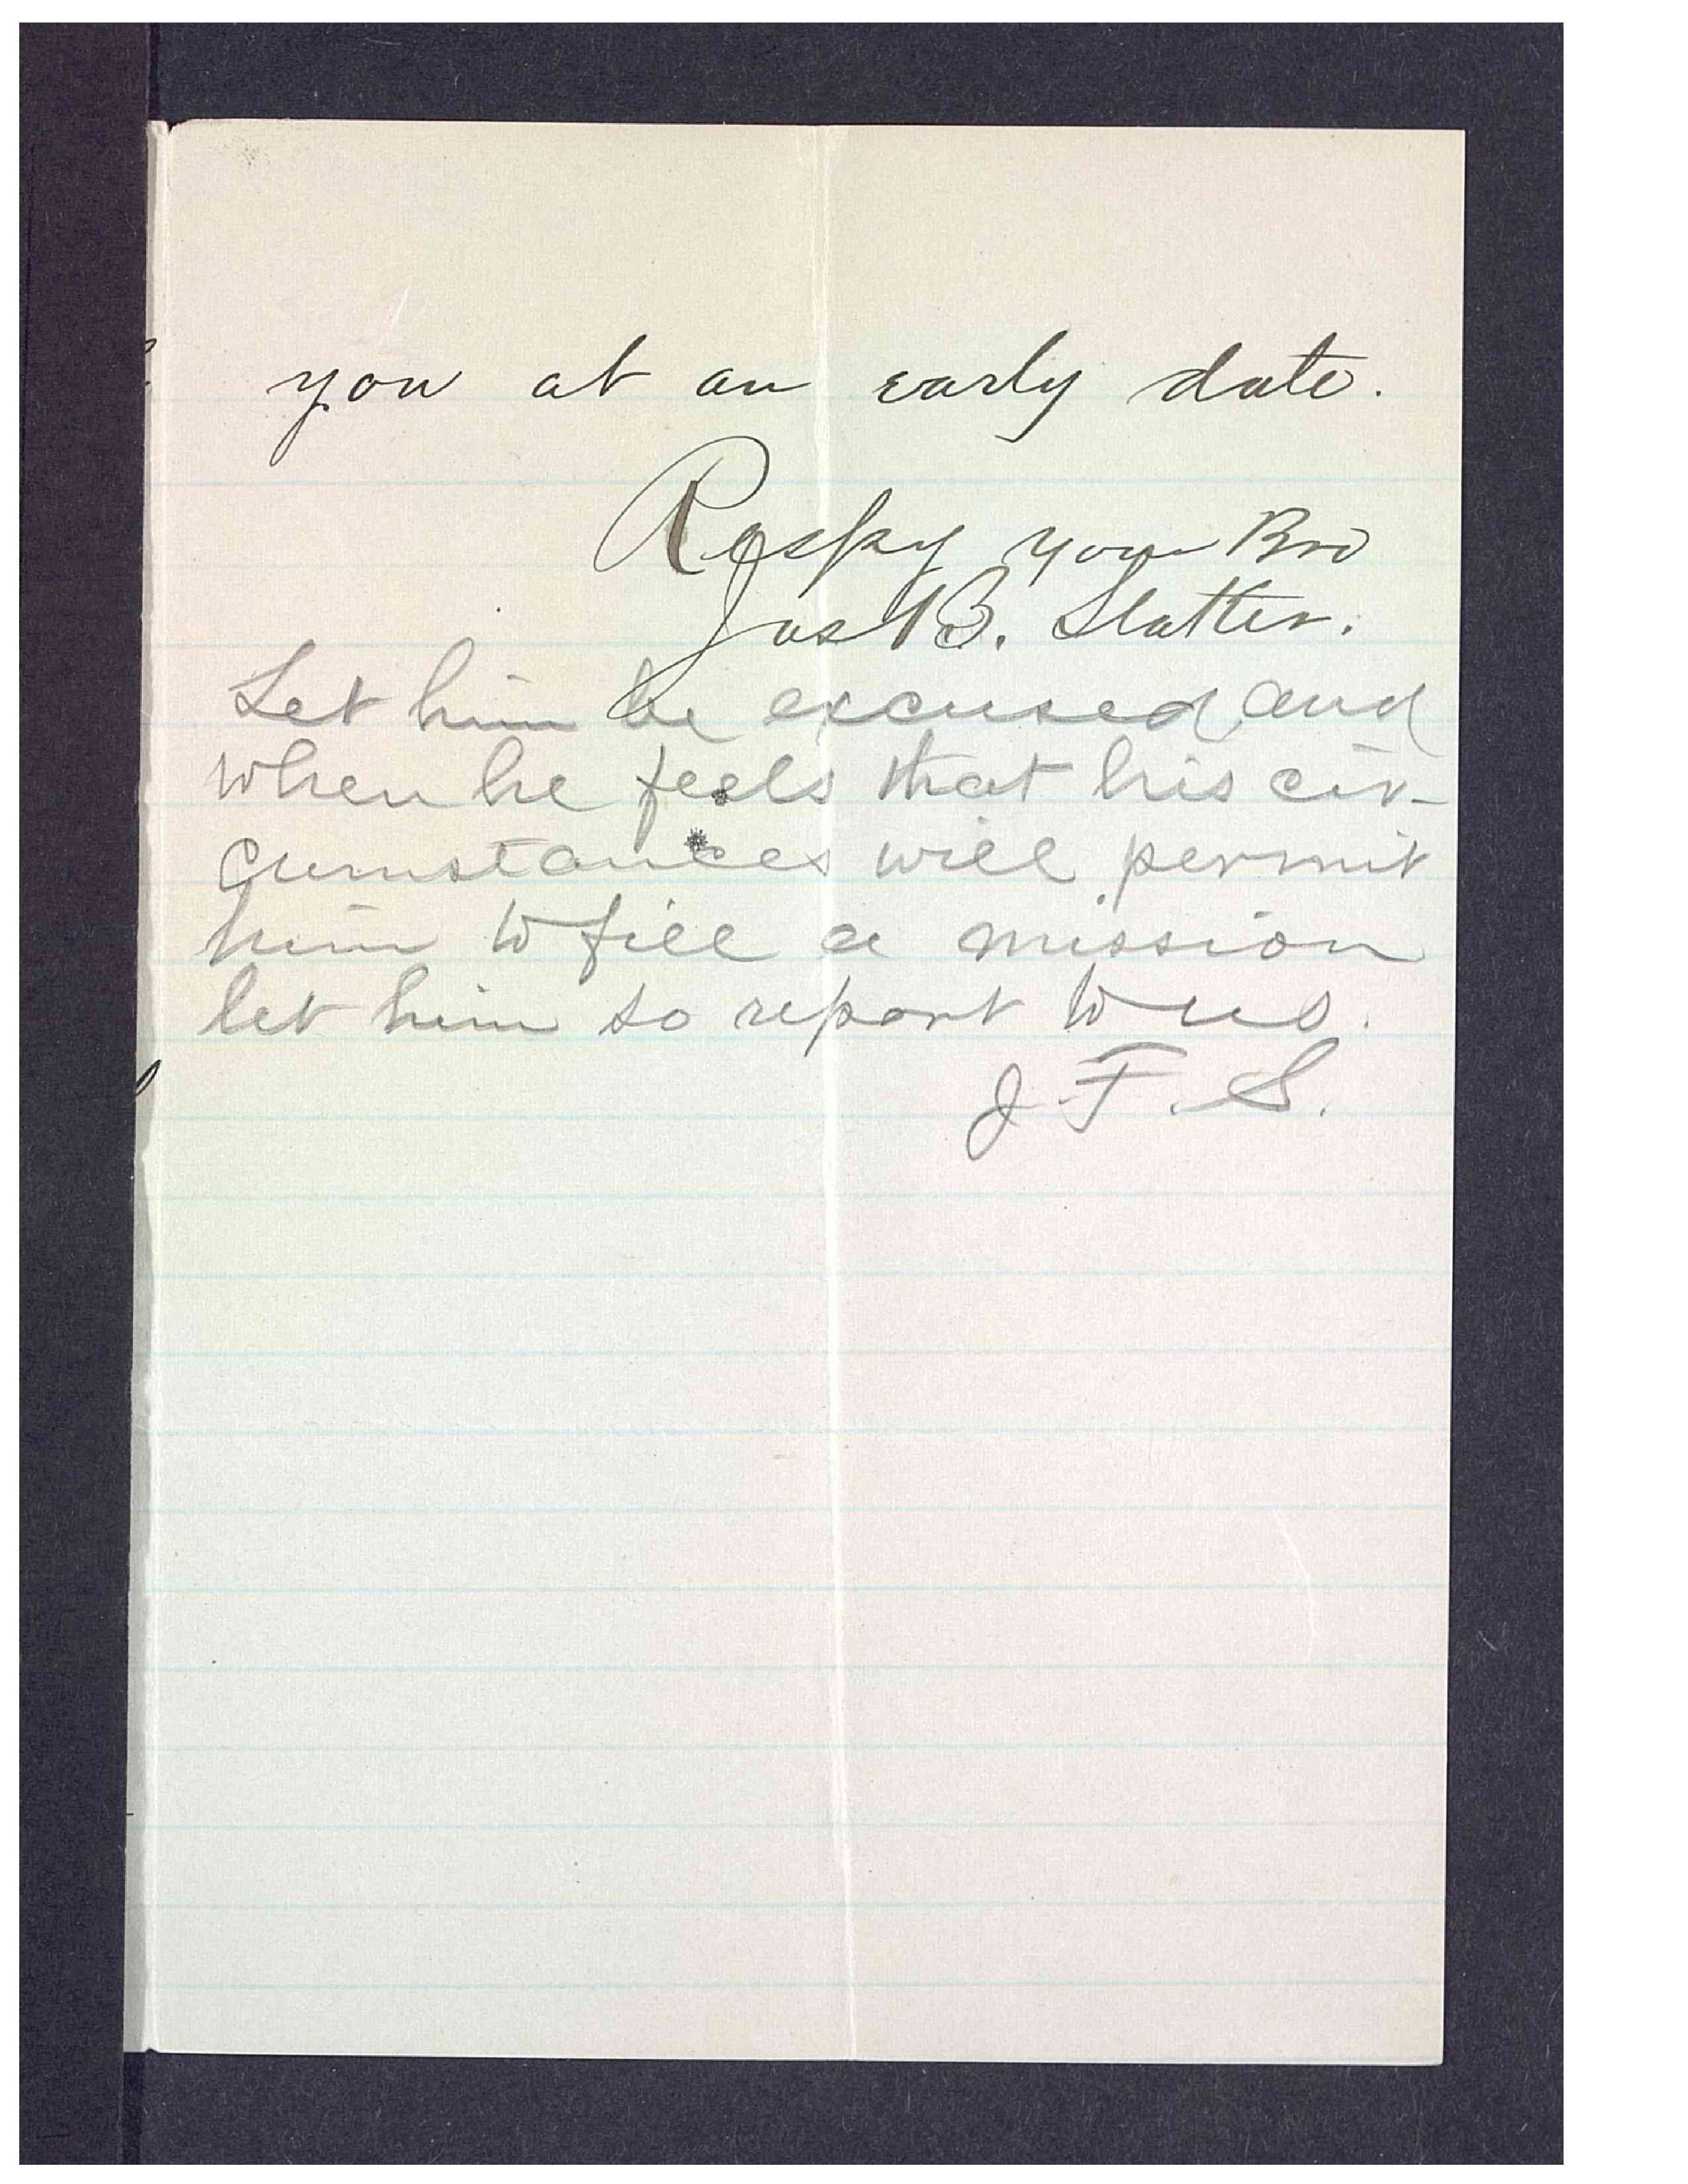 you at an early date.
Respy your Bro
Jas B. Slatter.
Let him be excused, and
when he feels that his cir-
cumstances will permit
him to fill a mission
let him so report to us.
J.F.S.